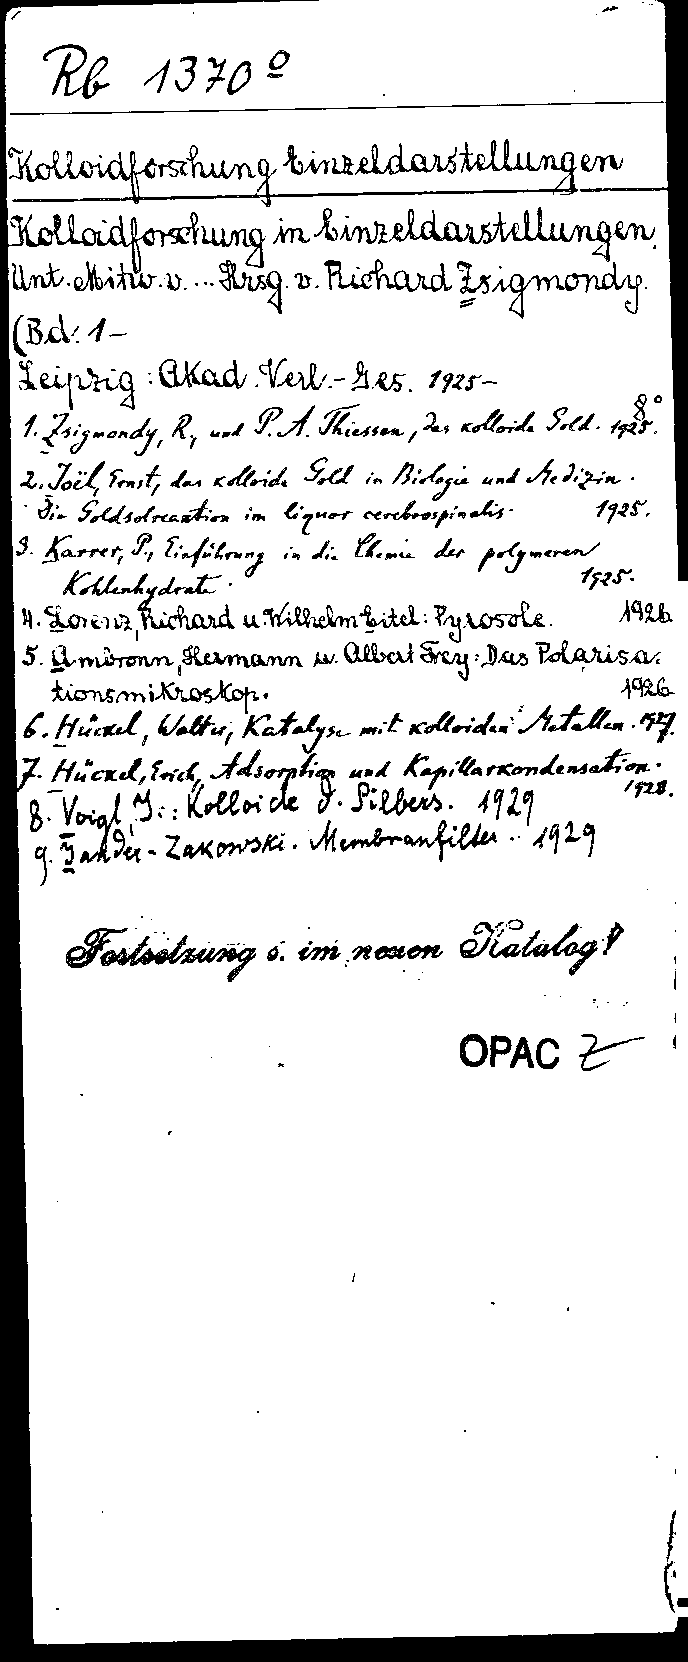 Rb 1370º
Kolloidforschung Einzeldarstellungen
Kolloidforschung in Einzeldarstellungen.
Unt. Mitw. v. ... Hrsg. v. Richard Zsigmondy.
(Bd. 1-
Leipzig: Akad. Verl.-Ges. 1925-
8º
1. Zsigmondy, R., und P. A. Thiessen, das kolloide Gold. 1925.
2. Joël, Ernst, das kolloide Gold in Biologie und Medizin.
Die Goldsolreaktion im liquor cerebrospinalis. 1925.
3. Karrer, P., Einführung in die Chemie der polymeren
Kohlenhydrate. 1925.
4. Lorenz, Richard u. Wilhelm Eitel: Pyrosole. 1926
5. Ambronn, Hermann u. Albert Frey: Das Polarisa-
tionsmikroskop. 1926
6. Hückel, Walter, Katalyse mit kolloiden Metallen. 1927.
7. Hückel, Erich, Adsorption und Kapillarkondensation.
1928.
8. Voigt, J.: Kolloide d. Silbers. 1929
9. Jander-Zakowski. Membranfilter. 1929
Fortsetzung s. im neuen Katalog!
OPAC Z